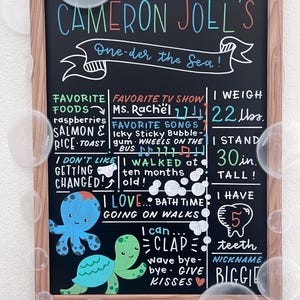 CAMERON JOEL'S
One-der the Sea!
FAVORITE
FOODS
raspberries
SALMON &
RICE · TOAST
FAVORITE TV SHOW
Ms. Rachel
FAVORITE SONGS
Icky Sticky Bubble-
gum · WHEELS ON THE
BUS
I WEIGH
22 lbs.
I STAND
30 in
TALL!
I DON'T LIKE
GETTING
CHANGED!
I WALKED at
ten months
old!
I LOVE... BATH TIME
GOING ON WALKS
I HAVE
5
teeth
I can...
CLAP
wave bye-
bye · GIVE
KISSES
NICKNAME
BIGGIE